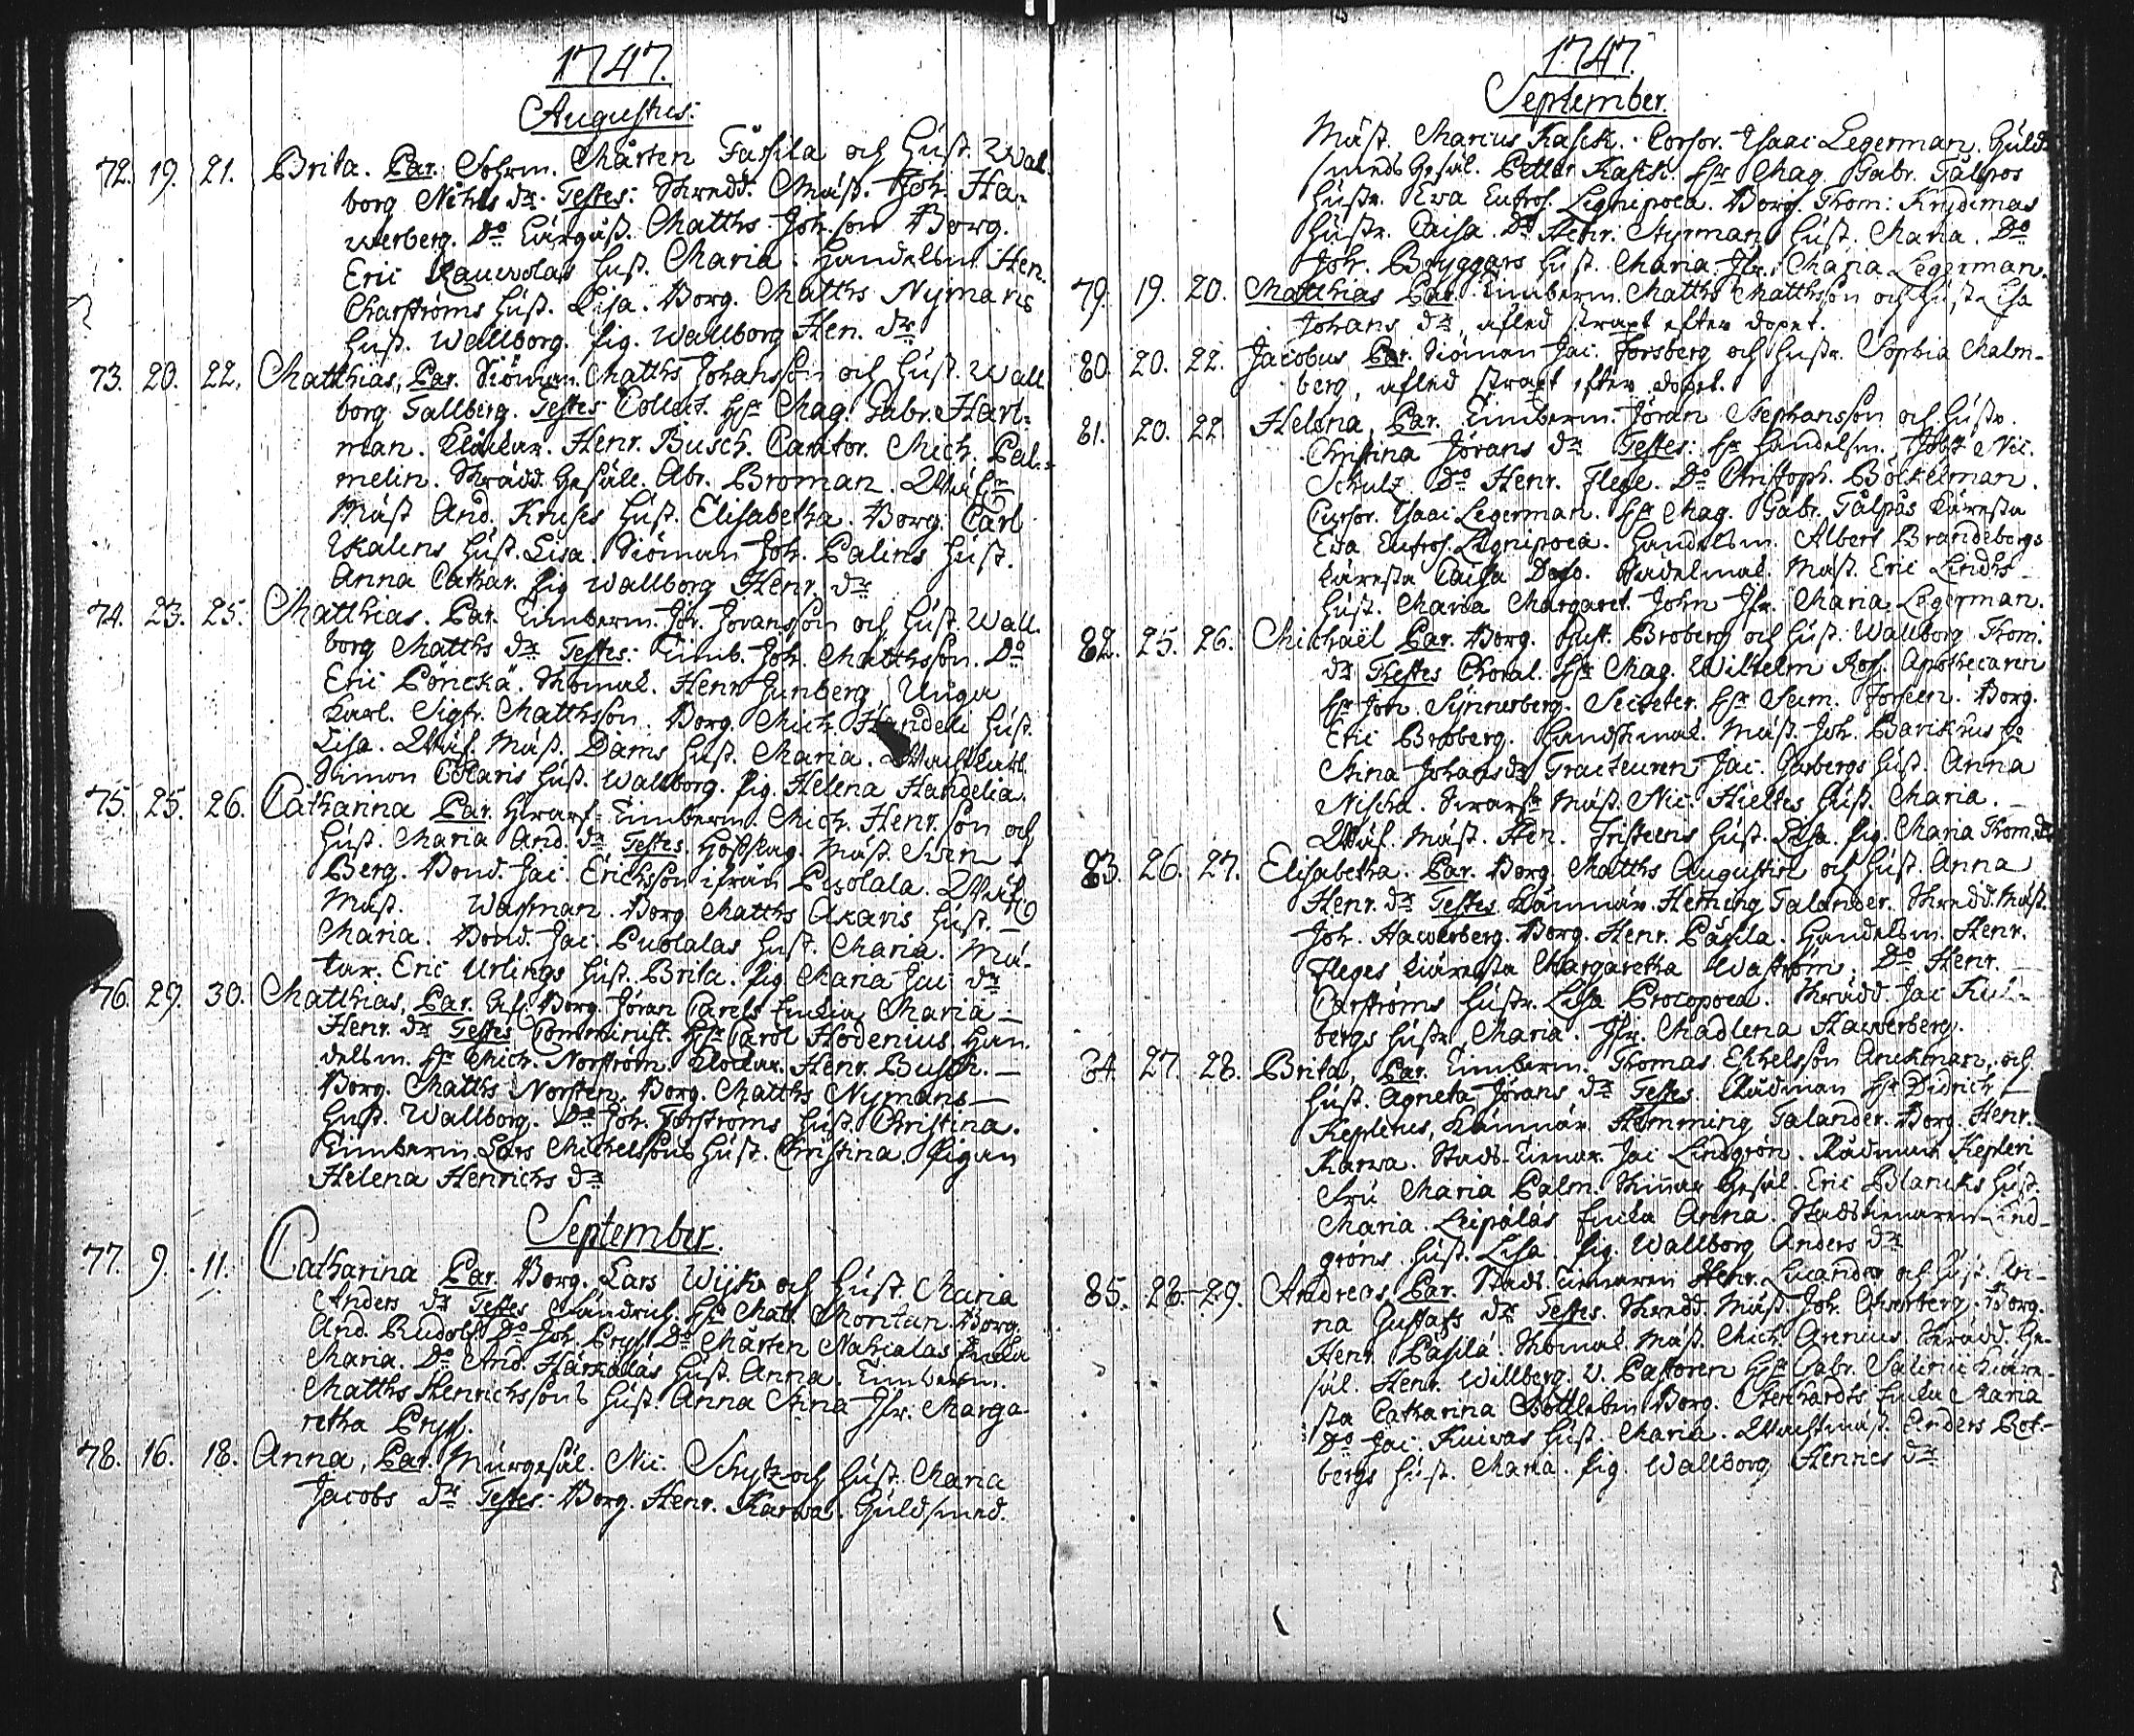 1747.
Augustus.
72. 19. 21. Brita. Par. Sohrm. Mårten Påsila och Hust. Wal
borg Nihls dr. Testes: Skredd. Mäst. Joh. Ha-
werberg. Do Matths Joh:son Borg.
Eric Hust. Maria. Handelsm. Hen.
Carströms Hust. Lisa. Borg. Matths Nymans
Hust. Wallborg. Pig. Wallborg Hen. dr
73. 20. 22. Matthias, Par. Siöman Matths Johansson och Hust. Wall
borg Tallberg. Testes Colleg. Hr Mag. Gabr. Hart-
man. Klåckar. Henr. Busch. Cantor. Mich. Pal-
melin. Skrädd. Gesäll. Abr. Broman.
Mäst And. Kruses Hust. Elisabetha. Borg. Carl
Hust. Lisa. Siöman Joh. Palins Hust.
Anna Cathar. Pig Wallborg Henr. dr
74. 23. 25. Matthias. Par. Timberm. Jör. Joransson och Hust. Wall
borg Matths dr Testes: Timb. Joh. Matthsson. Do
Eric Pöricka. Skomak. Henr Junberg Unga
Karl. Sigfr. Matthsson. Borg. Mich. Handeli Hust.
Lisa. Mäst. Dams Hust. Maria.
Simon Hust. Wallborg. Pig. Helena Handelia.
75. 25. 26. Catharina Par. Timberm. Mich. Henr. son och
Hust. Maria And. dr Testes. Mäst. Sven
Berg. Bond. Jac. Erichsson ifrån Puolala.
Mäst. Wassman. Borg. Matths Akaris Hust.
Maria. Bond. Jac. Puolalas Hust. Maria. Mu-
rar. Eric Urlings Hust. Brita. Pig Maria Jac dr
76. 29. 30. Matthias, Par. Borg. Jöran Carels Enkia Maria
Henr. dr Testes Comminist. Hr Carol Hodenius. Han
delsm. Hr Mich. Norström. Klockar. Henr. Busch.
Borg. Matths Norsten. Borg. Matths Nymans
Hust. Wallborg. Do Joh. Forströms Hust. Christina.
Timberm. Lars Michelsons Hust. Christina. Pigan
Helena Henrichs dr
September.
77. 9. 11. Catharina Par. Borg. Lars Wijk och Hust. Maria
Anders dr Testes Hr Matt. Montan. Borg.
And. Rudolf Do Joh. Pryss Do Mårten Nahialas Enka
Maria. Do And. Härkäläs Hust. Anna. Timberm.
Matths Henrichssons Hust. Anna Stina Jfr. Marga-
retha Pryss.
78. 16. 18. Anna, Par. Murgesäl. Nic. Schytz och Hust. Maria
Jacobs dr Testes. Borg. Henr. Karwa. Guldsmed.
1747.
September.
Mäst. Marcus Kasick. Cursor. Isaac Legerman. Guld-
smeds Gesäl. Petter Kasick. Hr Mag. Gabr. Tålpos
Hustr. Eva Eufros. Lignipoea. Borg. Thom: Krydimas
Hustr. Caisa. Do Henr. Styrmans Hust. Maria. Do
Joh. Bryggars Hust. Maria. Jfr. Maria Legerman.
79. 19. 20. Matthias Par. Timberm. Matths Matthsson och Hust. Lisa
Johans dr, afled straxt efter dopet.
80. 20. 22. Jacobus Par. Siöman Jac. Forsberg och Hustr. Sophia Malm-
berg, afled straxt efter dopet.
81. 20. 22. Helena, Par. Timberm. Jöran Stephansson och Hustr.
Christina Jörans dr Testes: Hr Handelsm. Jobst Nic.
Schulz Do Henr. Flege. Do Christoph. Bölkelman.
Cursor. Isaac Legerman. Hr Mag. Gabr. Tålpås Käresta
Eva Eufros. Lignipoea. Handelsm. Albert Brandeborgs
käresta Caisa Sadelmak. Mäst. Eric Lindhs
Hust. Maria Margaret. John Jfr. Maria Legerman.
82. 25. 26. Michaël Par. Borg. Gust. Broberg och Hust. Wallborg Thom.
dr Testes Hr Mag. Wilhelm Ross. Apothecaren
Hr Joh. Synnerberg. Secreter. Hr Sam. Forseen. Borg.
Eric Broberg. Handskmak. Mäst. Joh.
Stina Johans dr Tracteuren Jac. Garbergs Hust. Anna
Nischa. Swarf. Mäst. Nic. Hieltes Hust. Maria.
Mäst. Hen. Fristeens Hust. Lisa. Pig. Maria Thom. dr
83. 26. 27. Elisabetha. Par. Borg. Matths Augustin och Hust. Anna
Henr. dr Testes Kämnär. Hemming Talander. Skredd. Mäst.
Joh. Hawerberg. Borg. Henr. Påsila. Handelsm. Henr.
Fleges Kiäresta Margaretha Waström. Do Henr.
Carströms Hustr. Lisa Procopoea. Skrädd. Jac
bergs Hustr. Maria. Jfr. Madlena Hawerberg.
84. 27. 28. Brita, Par. Timberm. Thomas Michelsson Anckman och
Hust. Agneta Jörans dr Testes. Rådman Hr Didrich
Keplerus, Kämnär. Hemming Talander. Borg. Henr.
Karwa. Stads-Tienar. Jac Lindgrön. Rådman Kepleri
Fru Maria Palm. Gesäl. Eric Hust.
Maria. Leipäläs Enka Anna. Stadstienaren Lind-
gröns Hust. Lisa. Pig. Wallborg Anders dr
85. 28. 29. Andreas, Par. Stads Tienaren Henr. Lucander och Hust. An-
na Gustafs dr Testes. Skredd. Mäst. Joh. Borg.
Henr. Påsila. Skomak. Mäst. Mich. Arenius. Skrädd. Ge-
säl. Henr. Willberg. V. Pastoren Hr Gabr. Salenii Kiäre-
sta Catharina Gottleben Borg. Enka Maria
Do Jac. Kuiwas Hust. Maria. Wachtmäst. Anders Rot-
bergs Hust. Maria. Pig. Wallborg Henrics dr